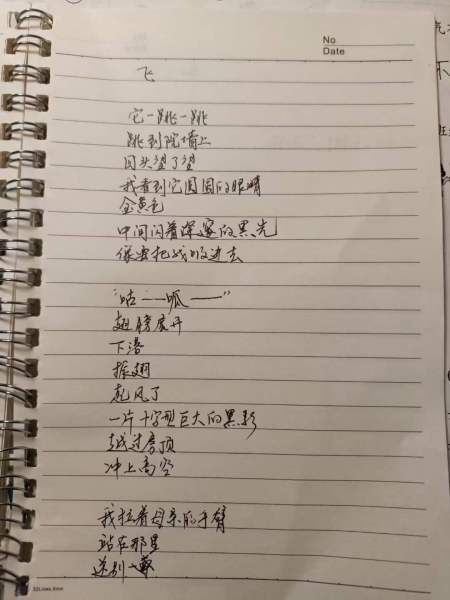 No
Date
飞
它一跳一跳
跳到院墙上
回头望了望
我看到它圆圆的眼睛
金黄色
中间闪着深邃的黑光
像要把我吸进去
“咕——呱——”
翅膀展开
下潜
振翅
起风了
一片十字型巨大的黑影
越过房顶
冲上高空
我拉着母亲的手臂
站在那里
送别